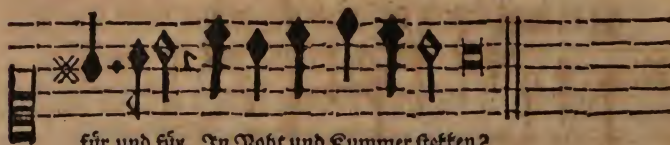 für und für. In Noht und Kummer stekken?